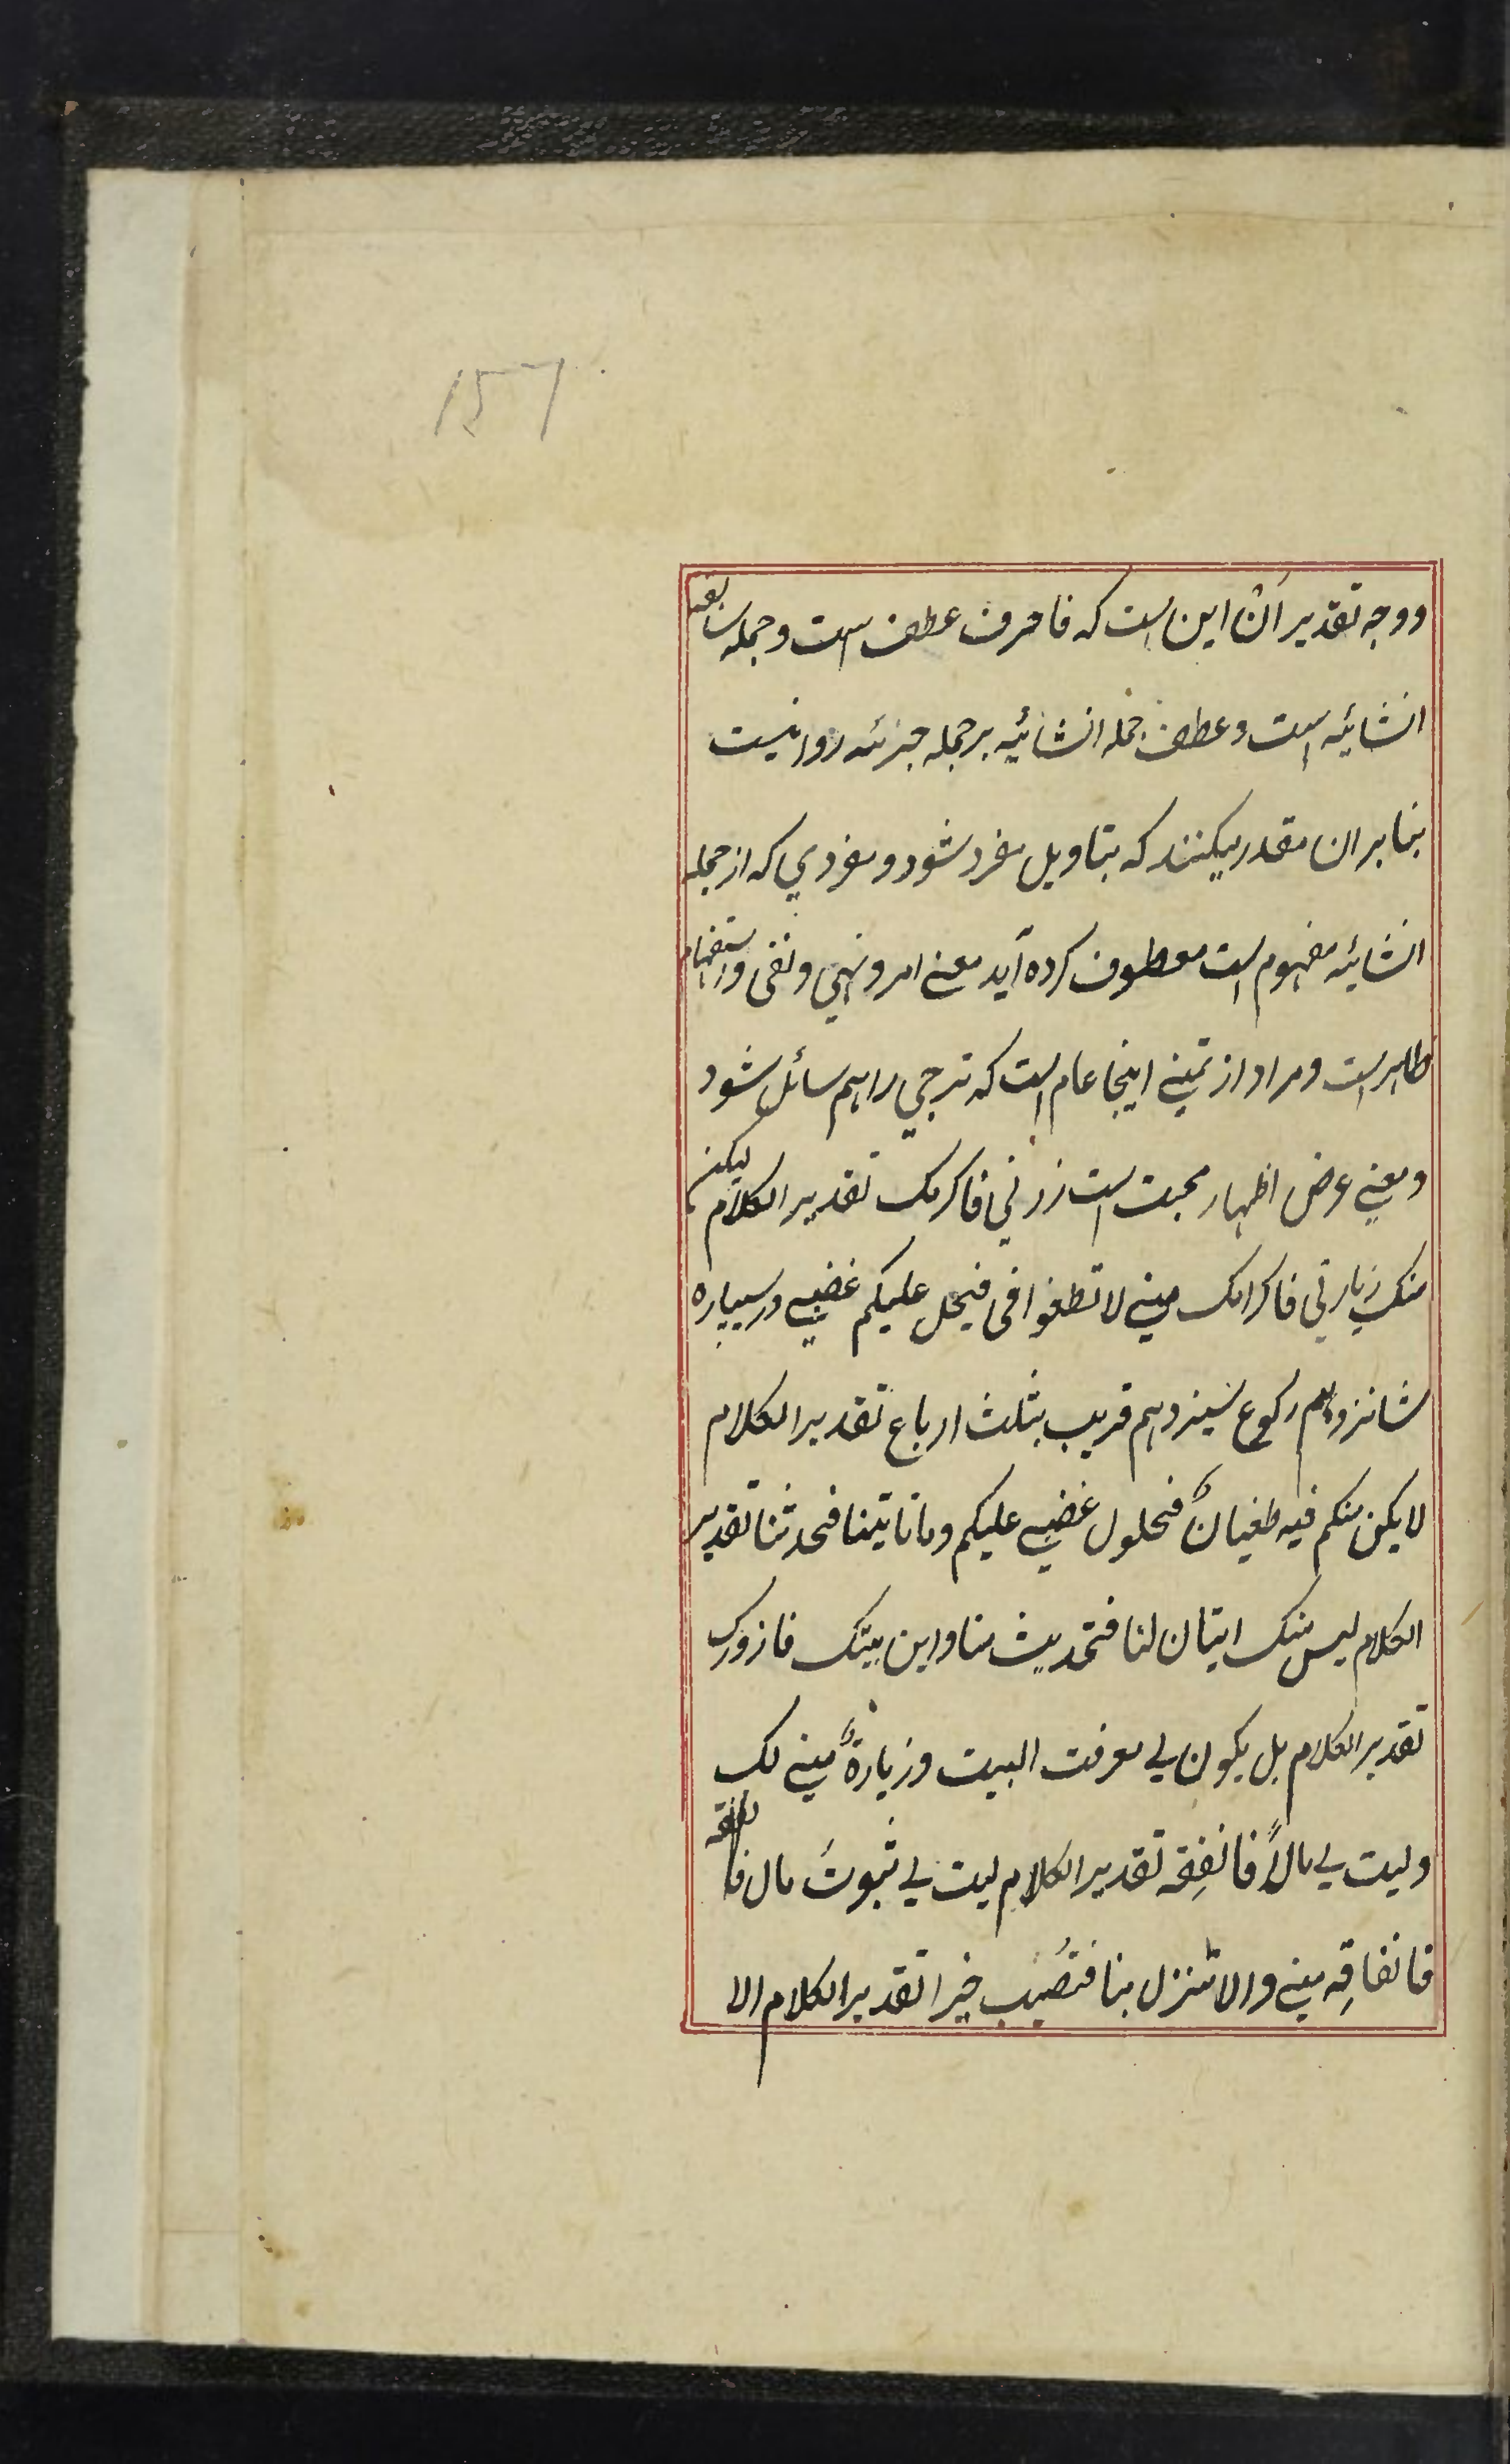 157
ووجه تقدیر اَنْ این است که فا حرف عطف است و جمله سابقه
انشائیه است و عطف جمله انشائیه بر جمله خبرئه روا نیست
بنابر ان مقدر میکنند که بتاویل مفرد شود و مفردي که از جمله
انشائیه مفهوم است معطوف کرده آید معنے امر و نهي و نفی و استفهام
ظاهر است و مراد از تمنے اینجا عام است که ترجي را هم سائل شود
و معنے عرض اظهار محبت است زرني فاکرمک تقدیر الکلام لیکن
منک زیارتي فاکرامک منے لا تطغوا فی فیحل علیکم غضبے در سیپاره
شانزدهم رکوع سیزدهم قریب بثلث ارباع تقدیر الکلام
لا یکن منکم فیه طغیانٌ فحلول غضبے علیکم و ما تاتینا فتحدثنا تقدیر
الکلام لیس منک ایتان لنا فتحدیث منا و این بیتک فازورک
تقدیر الکلام بل یکون لي معرفت البیت و زیارةٌ منے لک
و لیت لي مالاً فانفِقه تقدیر الکلام لیت لي ثبوتَ مال
فانفاقِه منے و الا تنزل بنا فتُصیب خیرا تقدیر الکلام الا